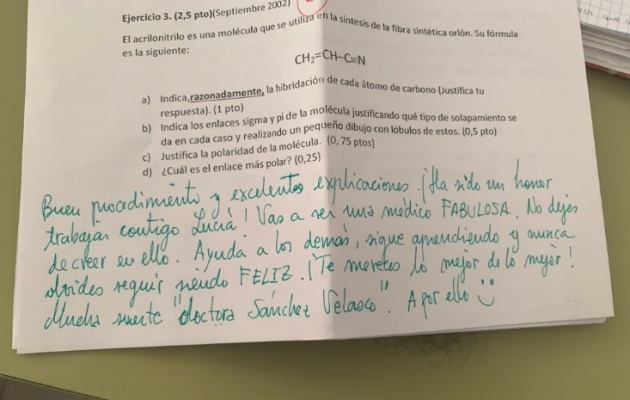 Ejercicio 3. (2,5 pto)(Septiembre 2002)
El acrilonitrilo es una molécula que se utiliza en la síntesis de la fibra sintética orlón. Su fórmula
es la siguiente:
CH₂=CH–C≡N
a) Indica,razonadamente, la hibridación de cada átomo de carbono (Justifica tu
respuesta). (1 pto)
b) Indica los enlaces sigma y pi de la molécula justificando qué tipo de solapamiento se
da en cada caso y realizando un pequeño dibujo con lóbulos de estos. (0,5 pto)
c) Justifica la polaridad de la molécula. (0, 75 ptos)
d) ¿Cuál es el enlace más polar? (0,25)
Buen procedimiento y excelentes explicaciones. ¡Ha sido un honor
trabajar contigo Lucía! Vas a ser una médico FABULOSA. No dejes
de creer en ello. Ayuda a los demás, sigue aprendiendo y nunca
olvides seguir siendo FELIZ. ¡Te mereces lo mejor de lo mejor!
Mucha suerte "doctora Sánchez Velasco". A por ello